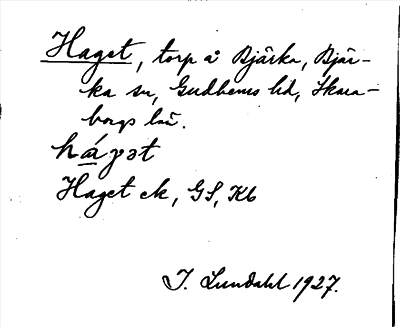 Haget, torp å Bjärka, Bjär-
ka sn, Gudhems hd, Skara-
borgs län.
háγət
Haget ek, GS, Kb
I. Lundahl 1927.